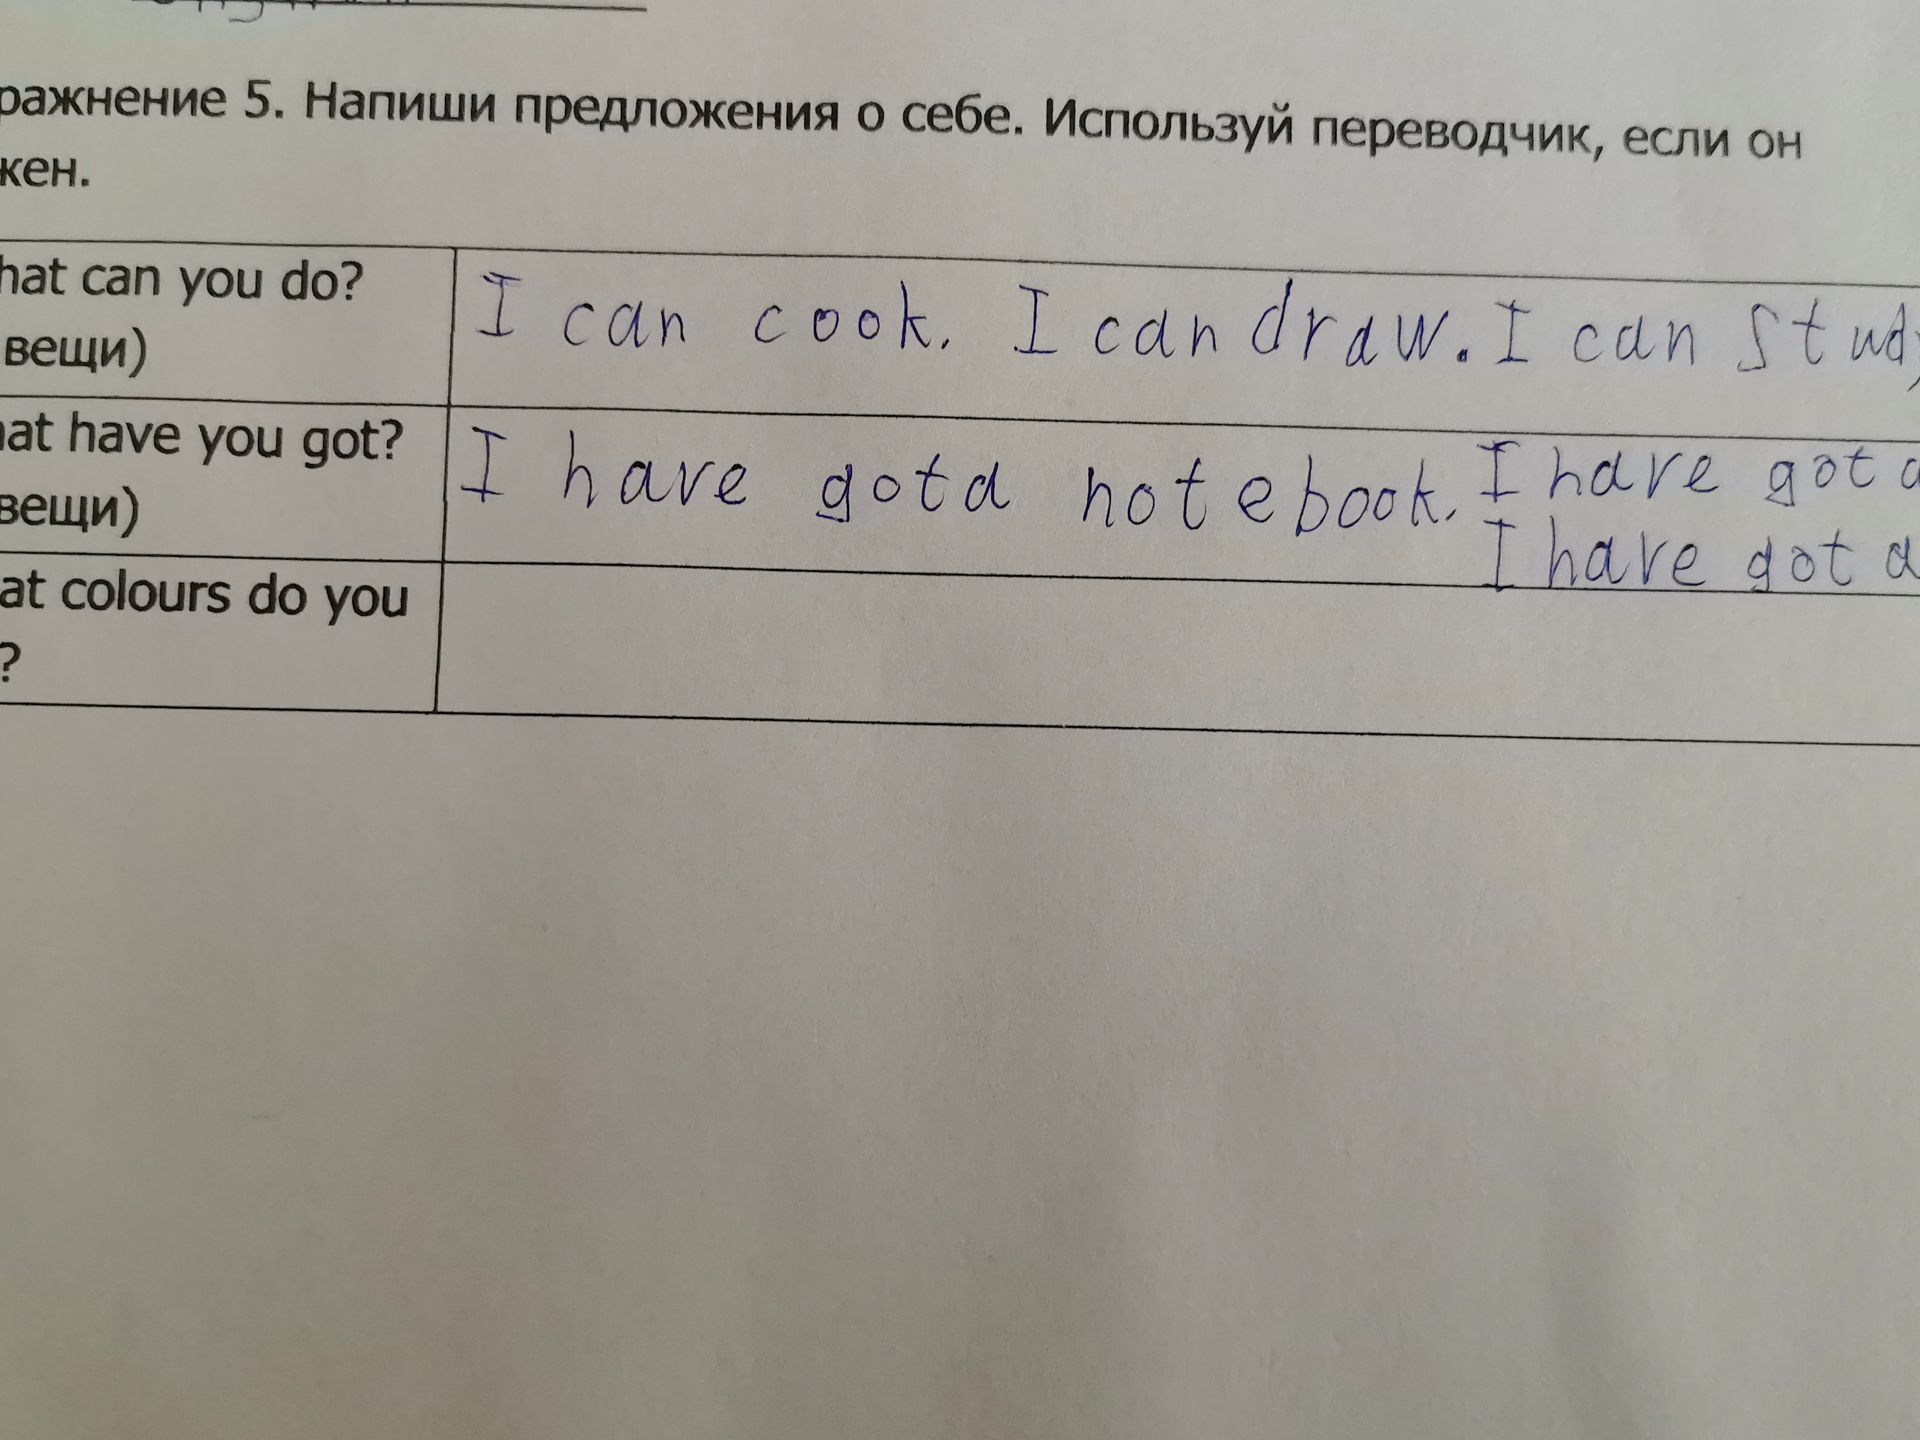 ражнение 5. Напиши предложения о себе. Используй переводчик, если он
жен.
hat can you do?
вещи)
I can cook. I can draw. I can study
hat have you got?
вещи)
I have got a notebook. I have got a
I have got a
at colours do you
?